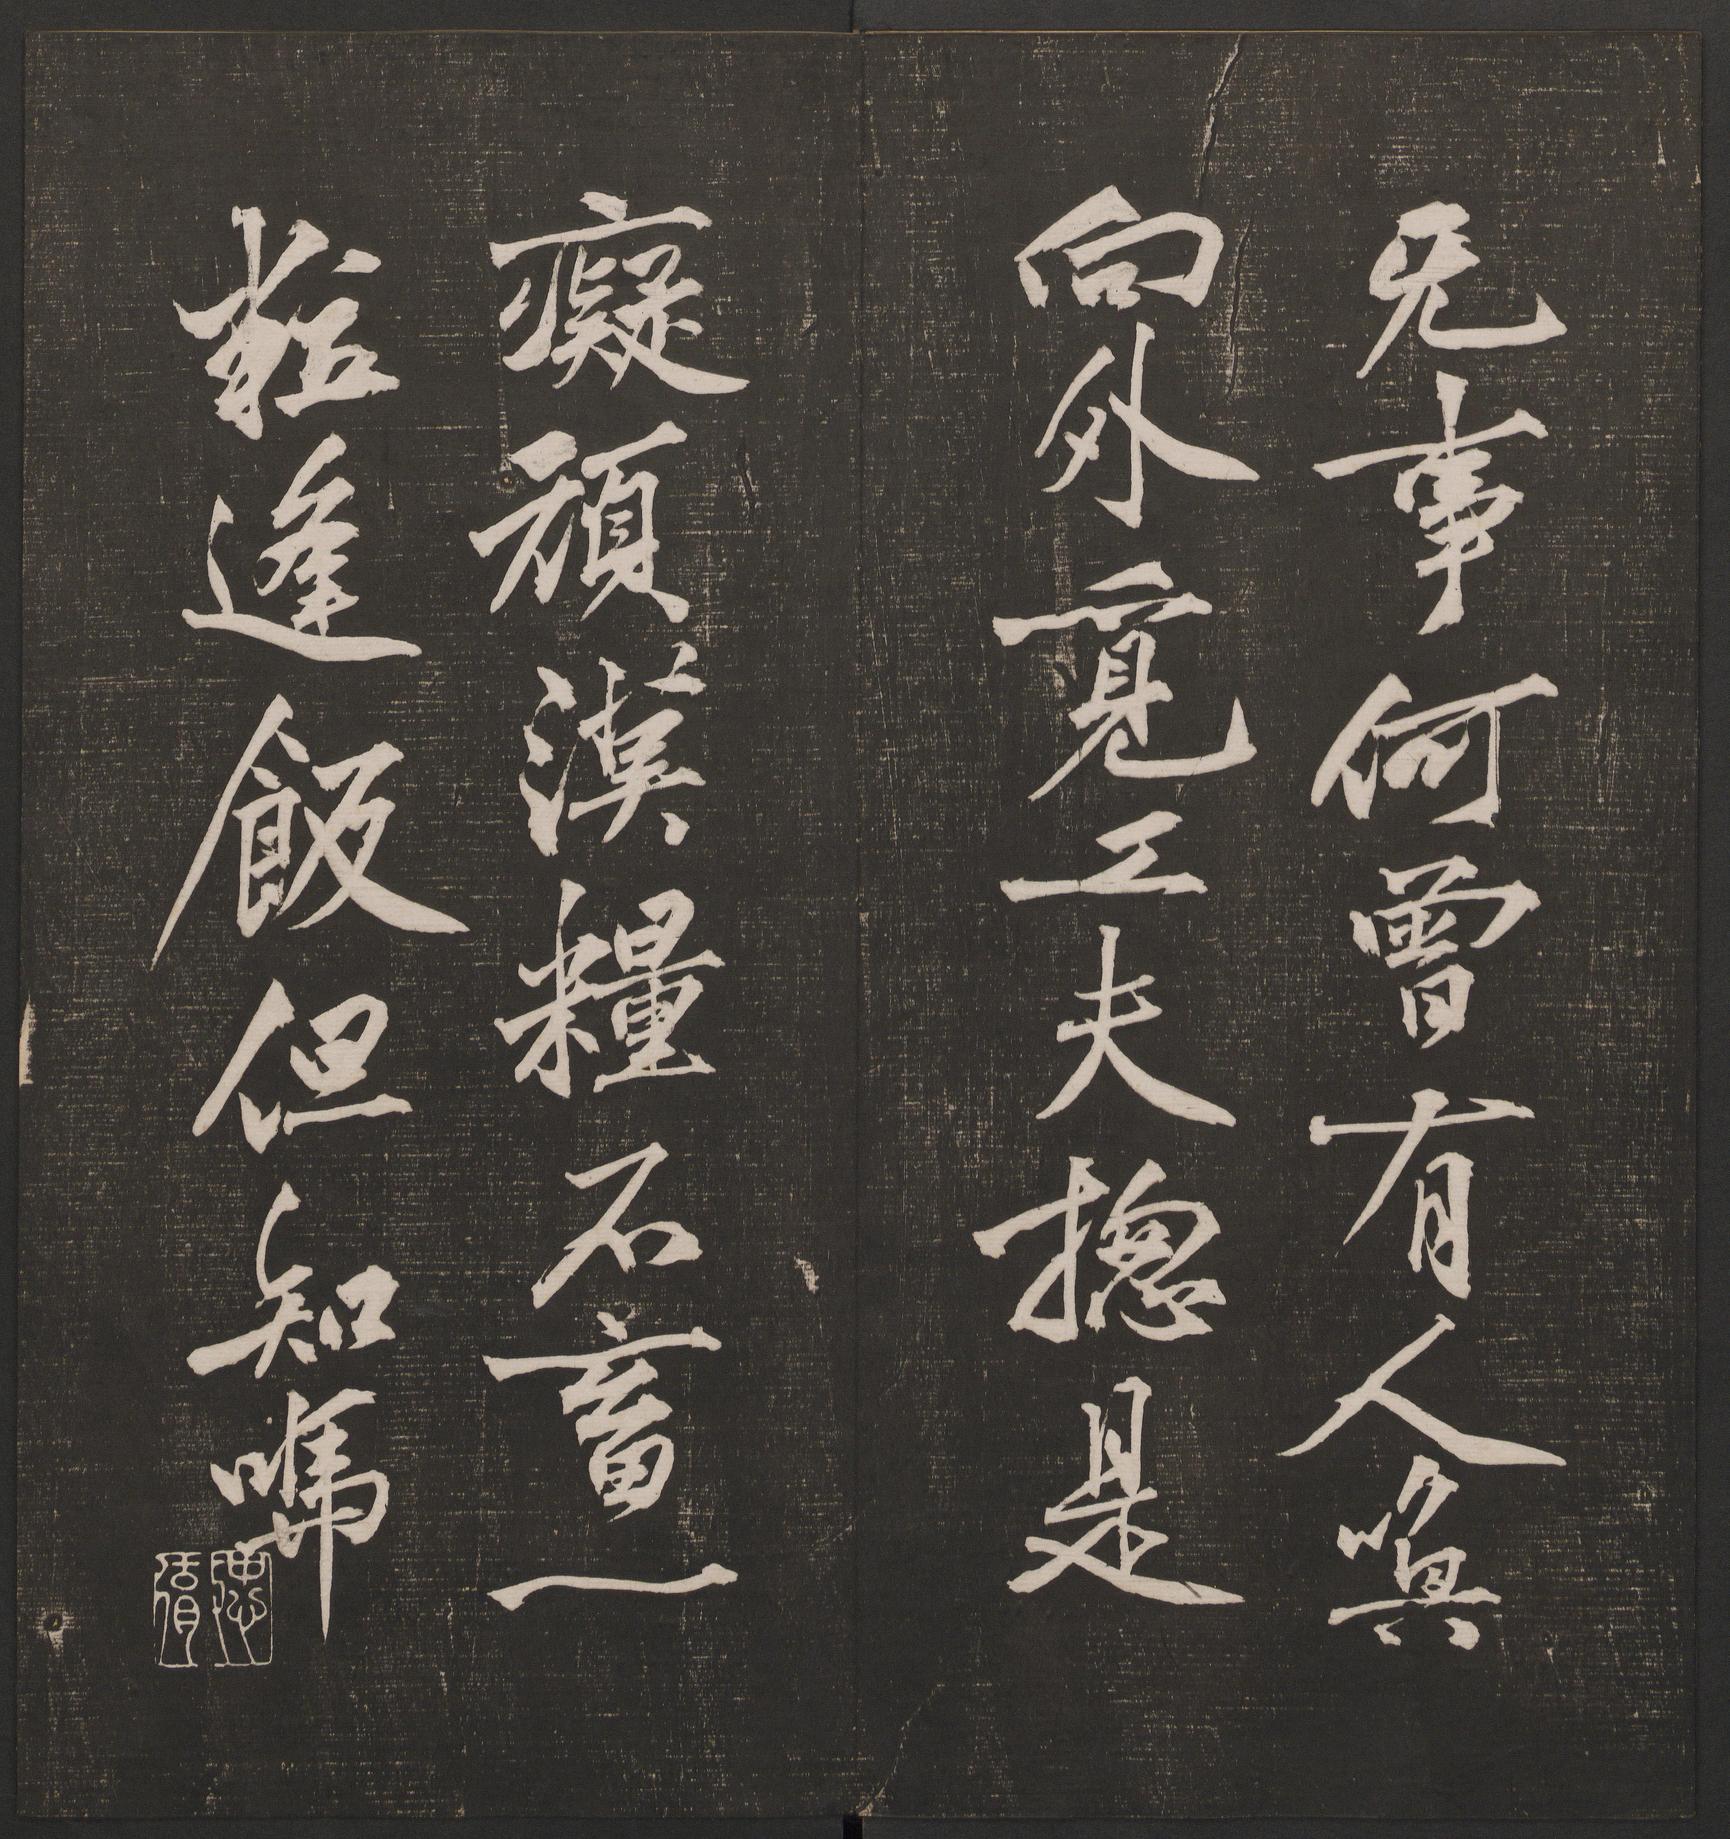 无事何曾有人喚
向外覔工夫揔是
癡頑漢糧不畜一
粒逢飯但知嗎